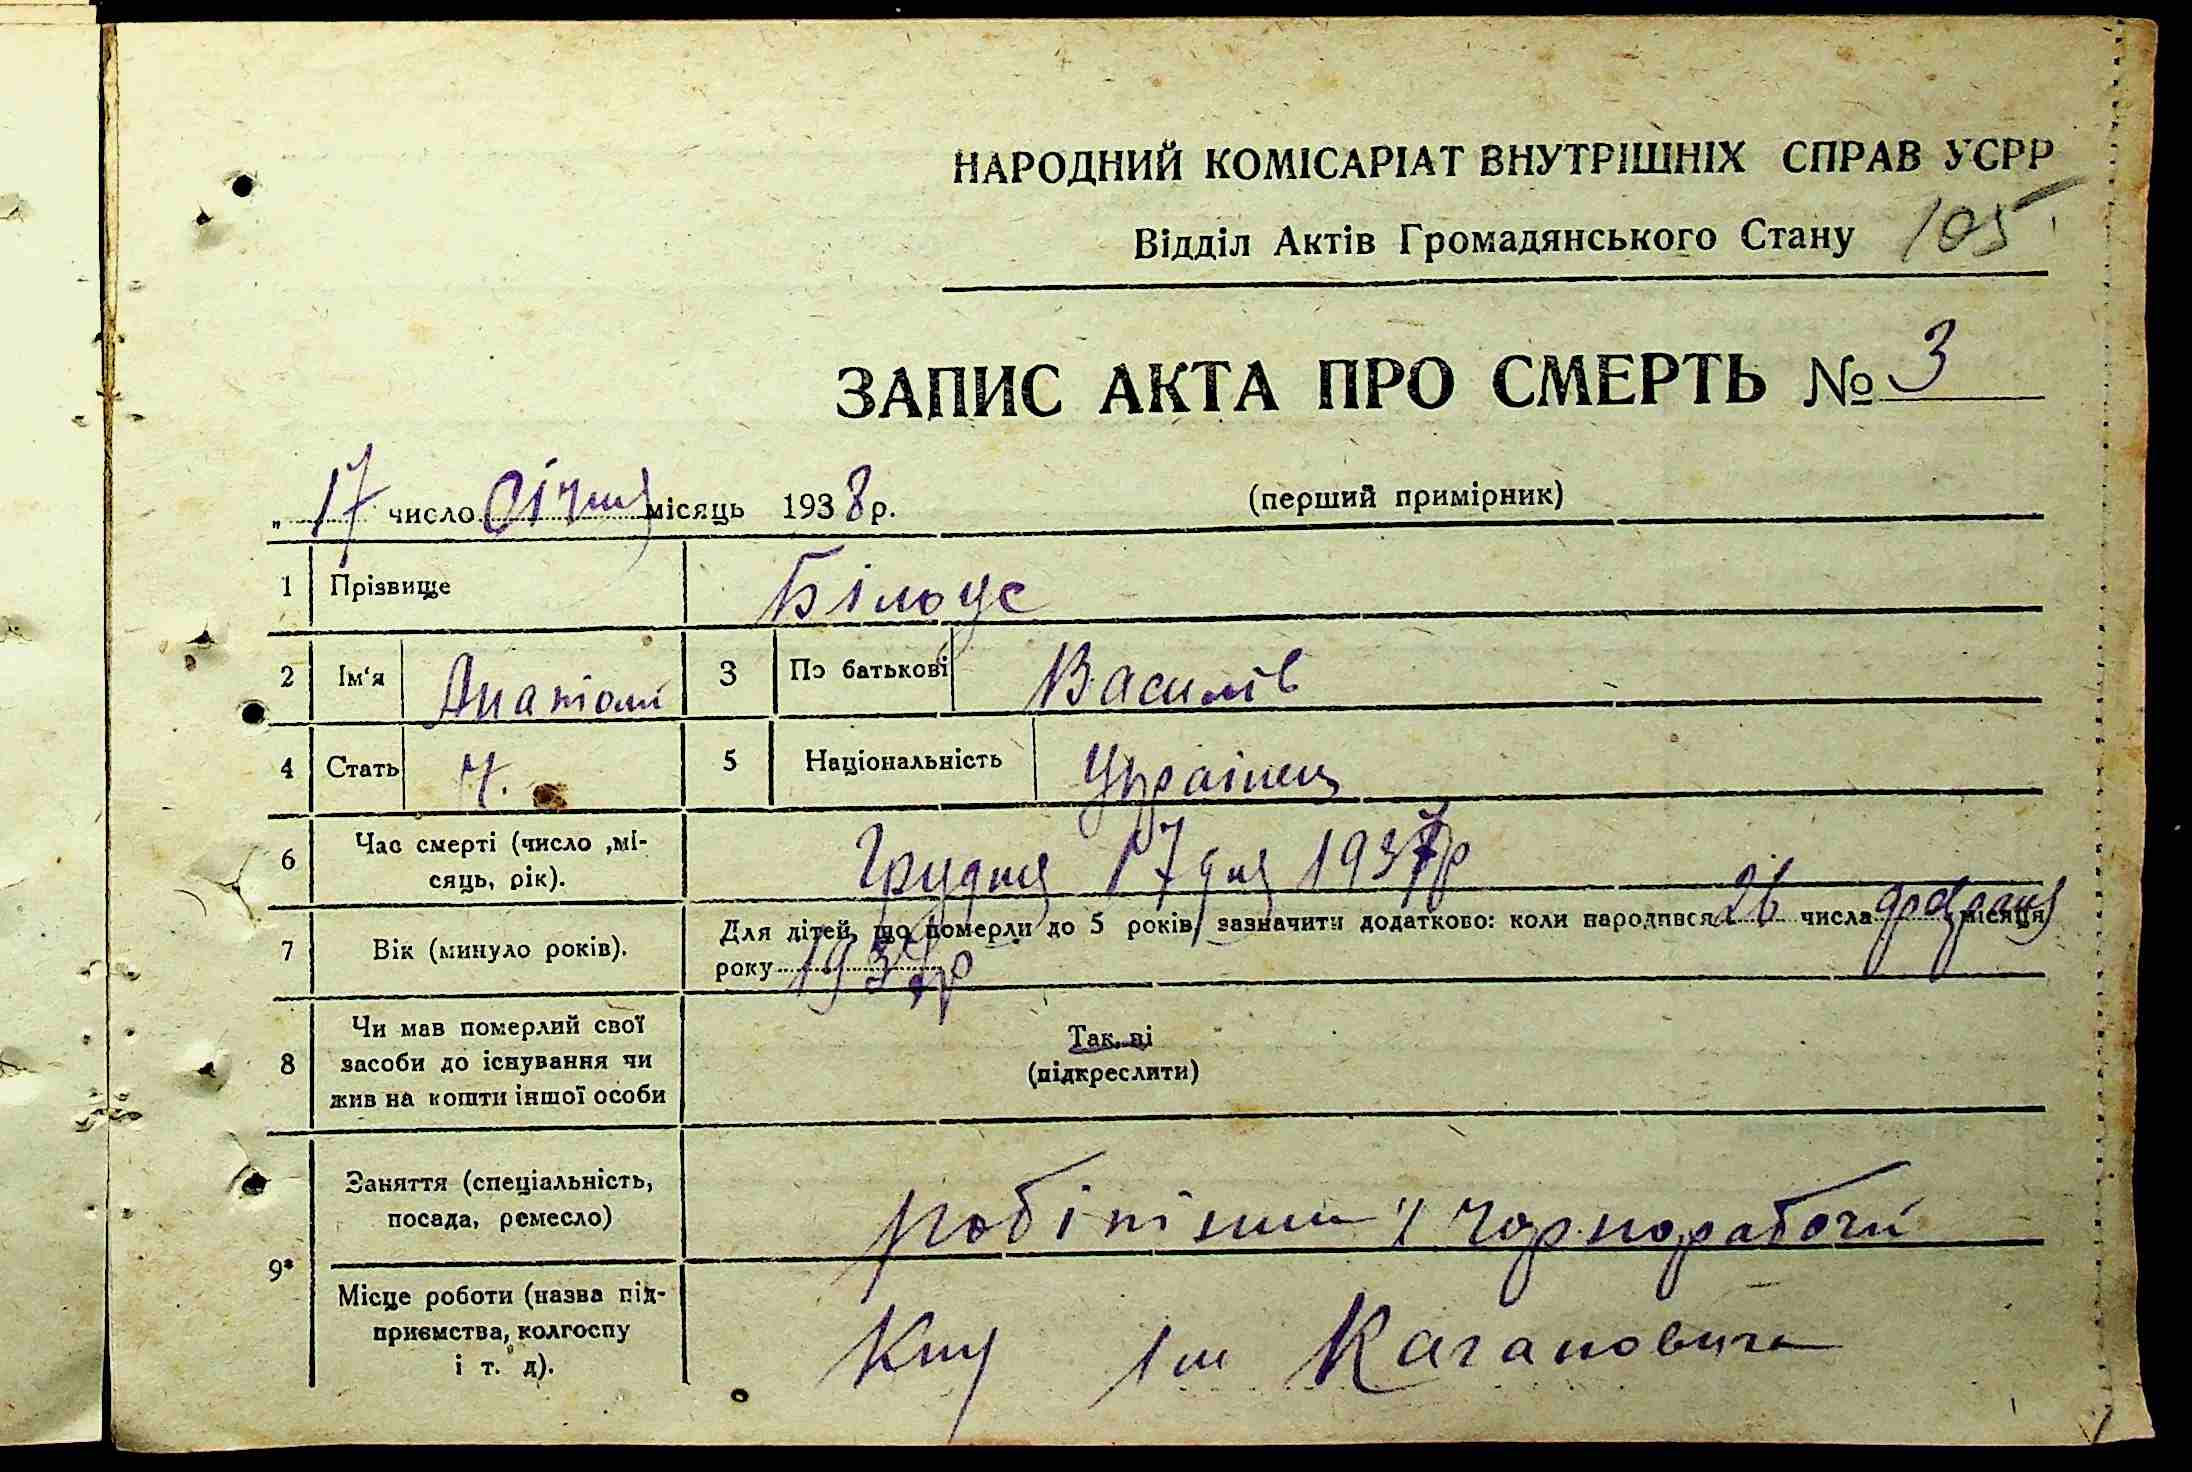 НАРОДНИЙ КОМІСАРІАТ ВНУТРІШНІХ СПРАВ УСРР
Відділ Актів Громадянського Стану 105
ЗАПИС АКТА ПРО СМЕРТЬ № 3
„ 17 число Січня місяць 1938 р.
(перший примірник)
1 Прізвище Білоус
2 Ім'я Анатолій 3 По батькові Василів
4 Стать Ч. 5 Національність Українец
6 Час смерті (число ,мі-
сяць, рік).
Грудня 17 дня 1937 р
7 Вік (минуло років).
Для дітей, що померли до 5 років, зазначити додатково: коли народився 26 числа місяця
року 1937 р
8 Чи мав померлий свої
засоби до існування чи
жив на кошти іншої особи
Так, ні
(підкреслити)
9*
Заняття (спеціальність,
посада, ремесло)
чорнорабочий
Місце роботи (назва під-
приємства, колгоспу
і т. д).
ім Кагановича